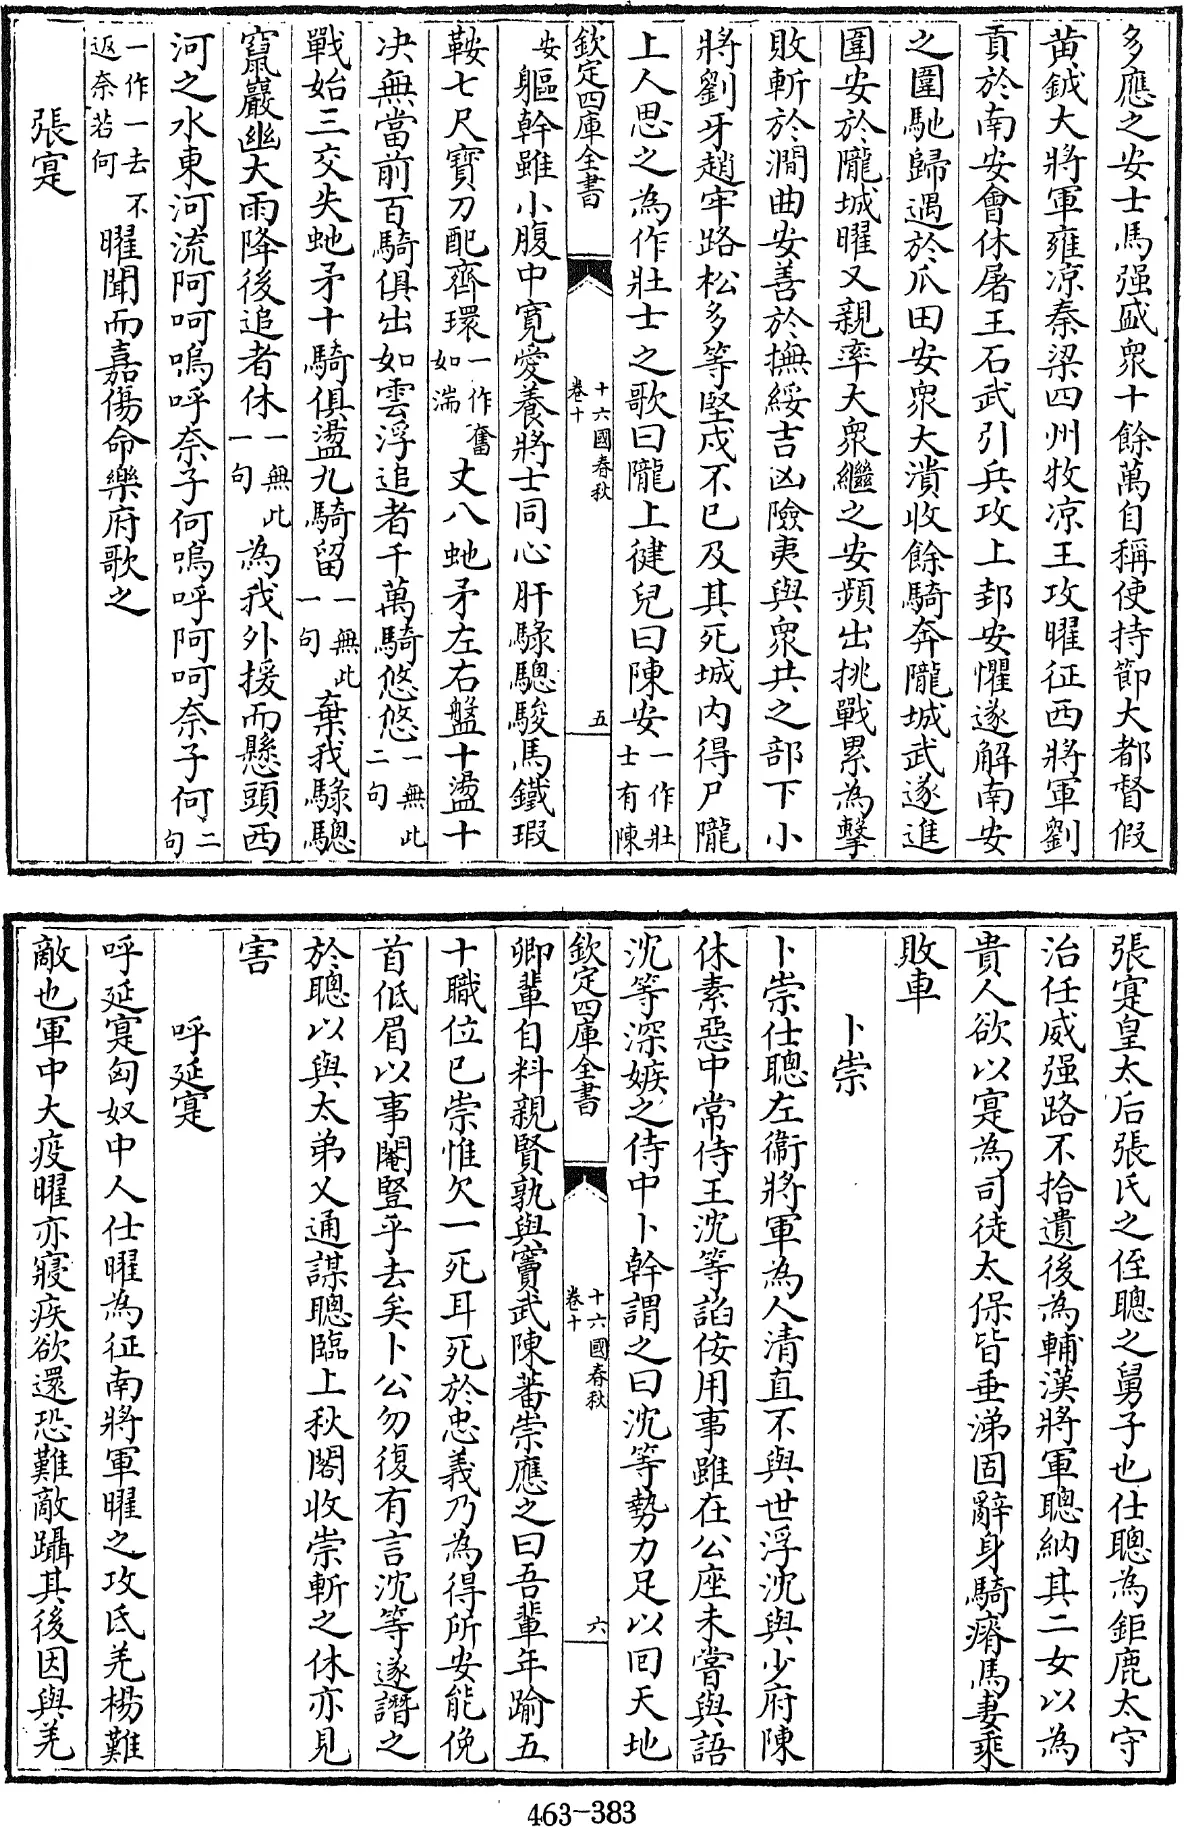 多應之安士馬强盛衆十餘萬自稱使持節大都督假
黄鉞大將軍雍凉秦梁四州牧凉王攻曜征西將軍劉
貢於南安會休屠王石武引兵攻上邽安懼遂解南安
之圍馳歸遇於爪田安衆大潰收餘騎奔隴城武遂進
圍安於隴城曜又親率大衆繼之安頻出挑戰累為擊
敗斬於澗曲安善於撫綏吉凶險夷與衆共之部下小
將劉牙趙牢路松多等堅戍不已及其死城内得尸隴
上人思之為作壯士之歌曰隴上徤兒曰陳安一作壯
士有陳
欽定四庫全書
十六國春秋
卷十
五
安
軀幹雖小腹中寛愛養將士同心肝騄驄駿馬鐵瑕
鞍七尺寶刀配齊環一作奮
如湍丈八虵矛左右盤十盪十
决無當前百騎俱出如雲浮追者千萬騎悠悠一無此
二句
戰始三交失虵矛十騎俱盪九騎留一無此
一句棄我騄驄
竄巖幽大雨降後追者休一無此
一句為我外援而懸頭西
河之水東河流阿呵嗚呼奈子何嗚呼阿呵奈子何二
句
一作一去不
返奈若何曜聞而嘉傷命樂府歌之
張寔
張寔皇太后張氏之侄聰之舅子也仕聰為鉅鹿太守
治任威强路不拾遺後為輔漢將軍聰納其二女以為
貴人欲以寔為司徒太保皆垂涕固辭身騎瘠馬妻乘
敗車
卜崇
卜崇仕聰左衞將軍為人清直不與世浮沈與少府陳
休素惡中常侍王沈等諂佞用事雖在公座未嘗與語
沈等深嫉之侍中卜幹謂之曰沈等勢力足以回天地
欽定四庫全書
十六國春秋
卷十
六
卿輩自料親賢孰與竇武陳蕃崇應之曰吾輩年踰五
十職位已崇惟欠一死耳死於忠義乃為得所安能俛
首低眉以事閹豎乎去矣卜公勿復有言沈等遂譖之
於聰以與太弟乂通謀聰臨上秋閣收崇斬之休亦見
害
呼延寔
呼延寔匈奴中人仕曜為征南將軍曜之攻氐羌楊難
敵也軍中大疫曜亦寢疾欲還恐難敵躡其後因與羌
463-383